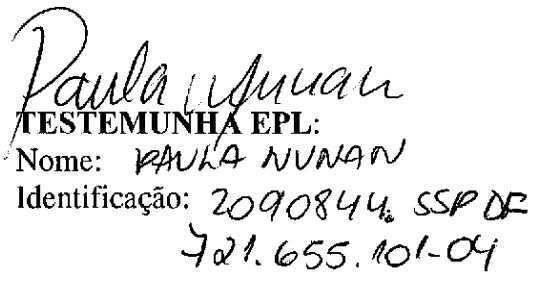 Paula Nunan
TESTEMUNHA EPL:
Nome: PAULA NUNAN
Identificação: 2090844. SSP DF
721.655.101-04